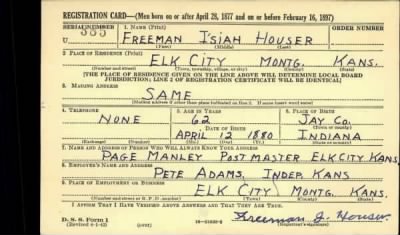 REGISTRATION CARD—(Men born on or after April 28, 1877 and on or before February 16, 1897)
SERIAL NUMBER 1. NAME (Print)
FREEMAN ISIAH HOUSER
(First) (Middle) (Last)
2. PLACE OF RESIDENCE (Print)
ELK CITY MONTG. KANS.
(Number and street) (Town, township, village, or city) (County) (State)
[THE PLACE OF RESIDENCE GIVEN ON THE LINE ABOVE WILL DETERMINE LOCAL BOARD
JURISDICTION; LINE 2 OF REGISTRATION CERTIFICATE WILL BE IDENTICAL]
3. MAILING ADDRESS
SAME
(Mailing address if other than place indicated on line 2. If same insert word same)
4. TELEPHONE 5. AGE IN YEARS 6. PLACE OF BIRTH
NONE 62 JAY CO.
DATE OF BIRTH (Town or county)
APRIL 12 1880 INDIANA
(Exchange) (Number) (Mo.) (Day) (Yr.) (State or country)
7. NAME AND ADDRESS OF PERSON WHO WILL ALWAYS KNOW YOUR ADDRESS
PAGE MANLEY POST MASTER ELK CITY KANS.
8. EMPLOYER'S NAME AND ADDRESS
PETE ADAMS, INDEP. KANS
9. PLACE OF EMPLOYMENT OR BUSINESS
ELK CITY MONTG. KANS
(Number and street or R. F. D. number) (Town) (County) (State)
I AFFIRM THAT I HAVE VERIFIED ABOVE ANSWERS AND THAT THEY ARE TRUE.
D. S. S. Form 1
(Revised 4-1-42) (over)
Freeman I. Houser